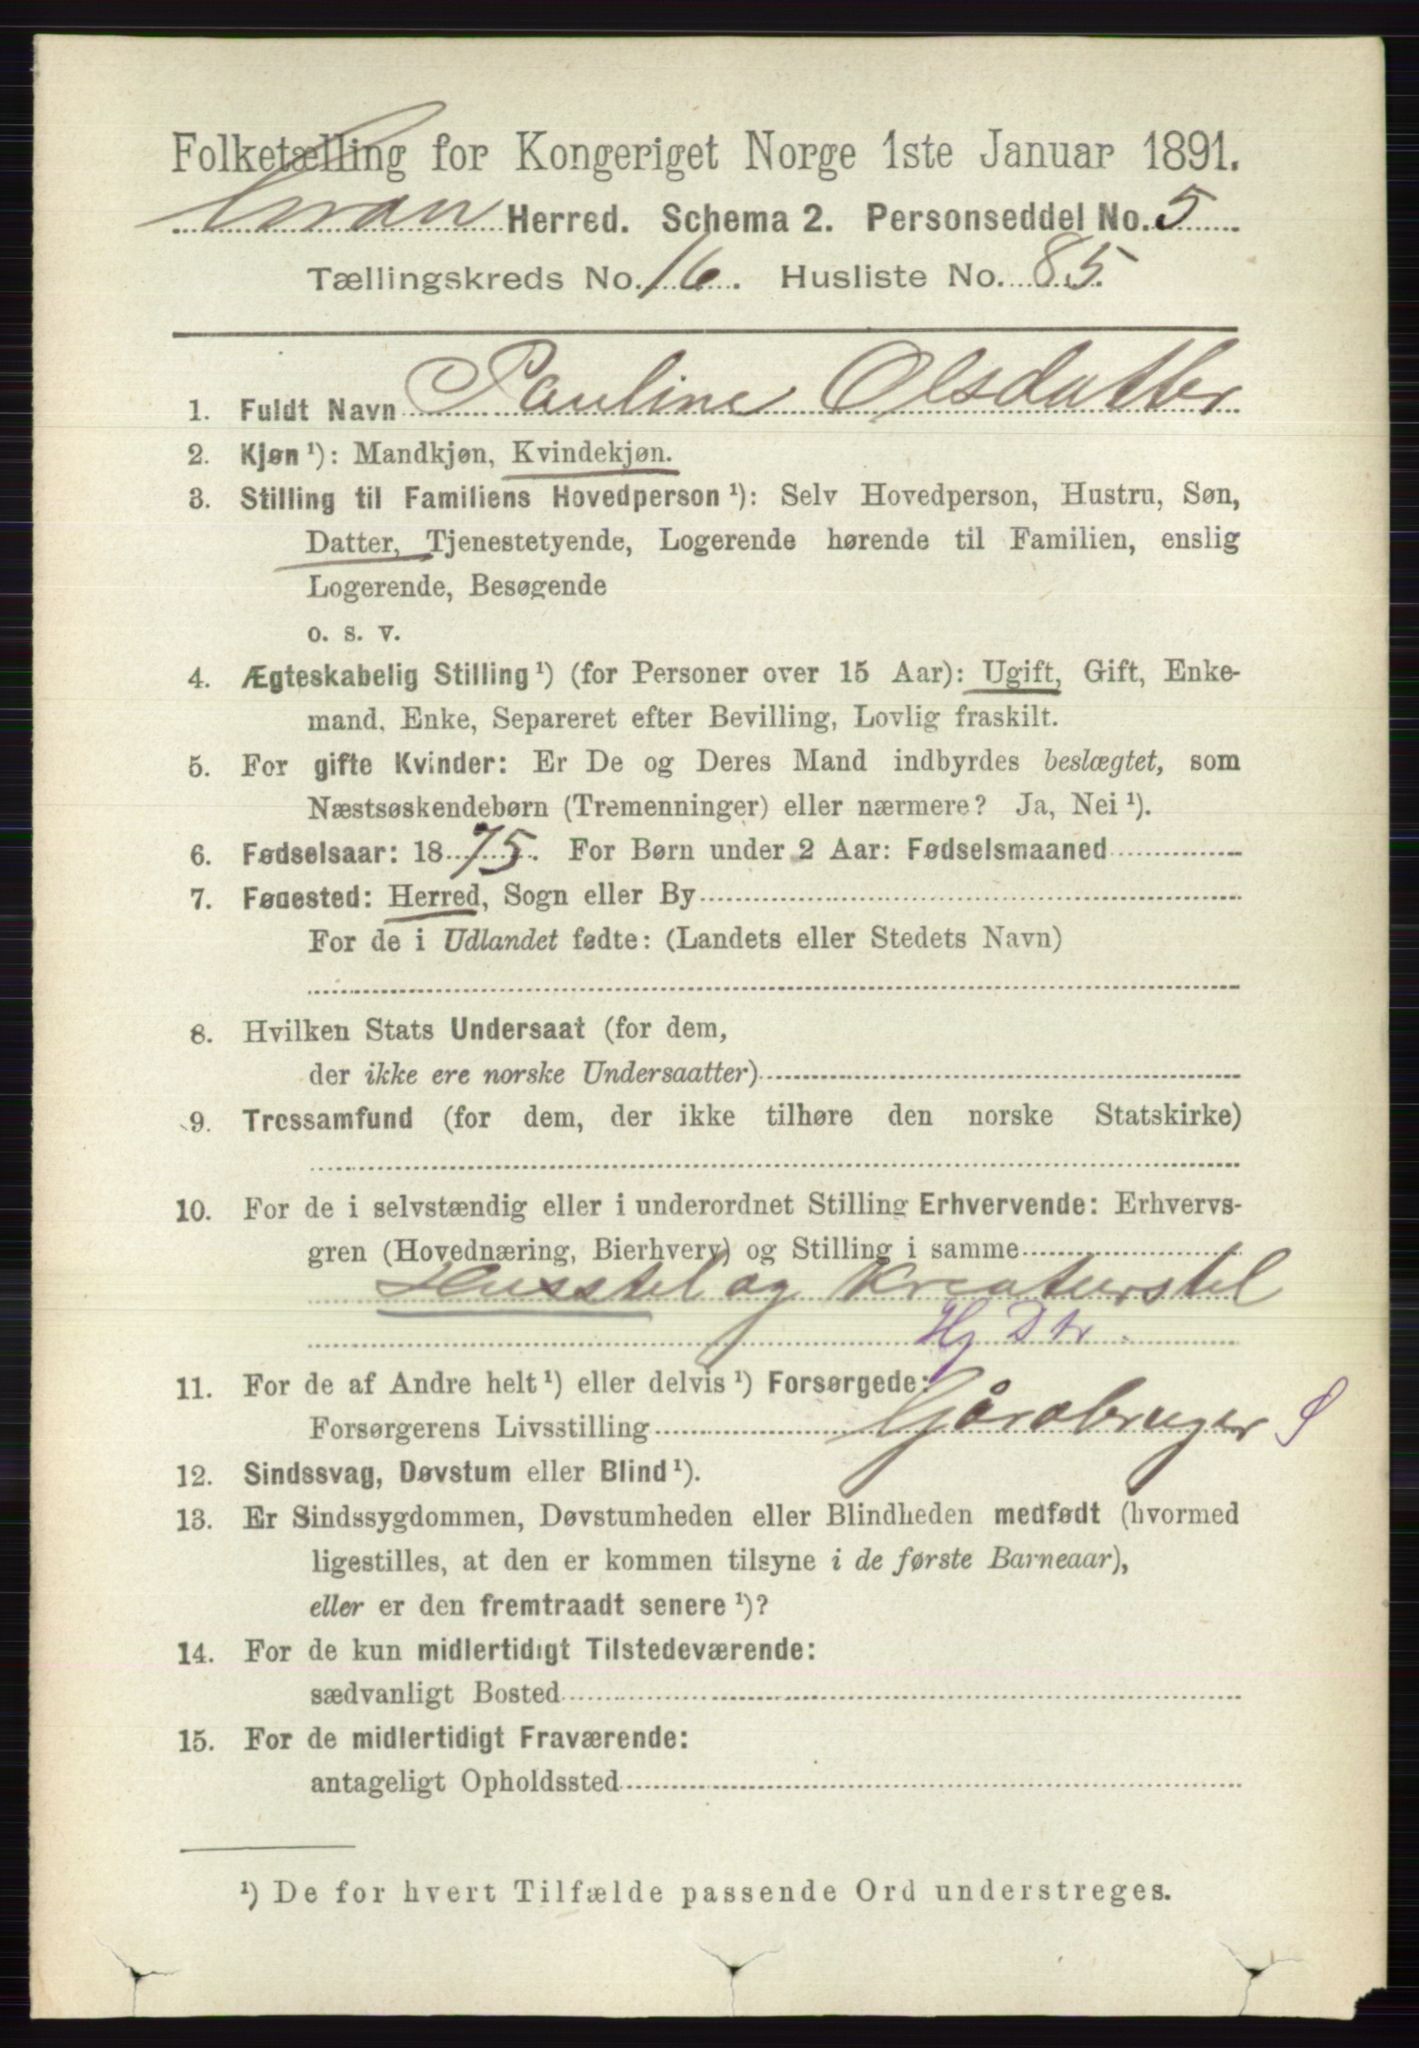 Folketælling for Kongeriget Norge 1ste Januar 1891.
Gran Herred. Schema 2. Personseddel No. 5
Tællingskreds No. 16. Husliste No. 85.
1. Fuldt Navn Pauline Olsdatter
2. Kjøn ¹): Mandkjøn, Kvindekjøn.
3. Stilling til Familiens Hovedperson ¹): Selv Hovedperson, Hustru, Søn,
Datter, Tjenestetyende, Logerende hørende til Familien, enslig
Logerende, Besøgende
o. s. v.
4. Ægteskabelig Stilling ¹) (for Personer over 15 Aar): Ugift, Gift, Enke-
mand, Enke, Separeret efter Bevilling, Lovlig fraskilt.
5. For gifte Kvinder: Er De og Deres Mand indbyrdes beslægtet, som
Næstsøskendebørn (Tremenninger) eller nærmere? Ja, Nei ¹).
6. Fødselsaar: 1875. For Børn under 2 Aar: Fødselsmaaned
7. Fødested: Herred, Sogn eller By
For de i Udlandet fødte: (Landets eller Stedets Navn)
8. Hvilken Stats Undersaat (for dem,
der ikke ere norske Undersaatter)
9. Trossamfund (for dem, der ikke tilhøre den norske Statskirke)
10. For de i selvstændig eller i underordnet Stilling Erhvervende: Erhvervs-
gren (Hovednæring, Bierhverv) og Stilling i samme
Husstel og Kreaturstel
Hj Dtr.
11. For de af Andre helt ¹) eller delvis ¹) Forsørgede:
Forsørgerens Livsstilling Gårdbruger S
12. Sindssvag, Døvstum eller Blind ¹).
13. Er Sindssygdommen, Døvstumheden eller Blindheden medfødt (hvormed
ligestilles, at den er kommen tilsyne i de første Barneaar),
eller er den fremtraadt senere ¹)?
14. For de kun midlertidigt Tilstedeværende:
sædvanligt Bosted
15. For de midlertidigt Fraværende:
antageligt Opholdssted
¹) De for hvert Tilfælde passende Ord understreges.